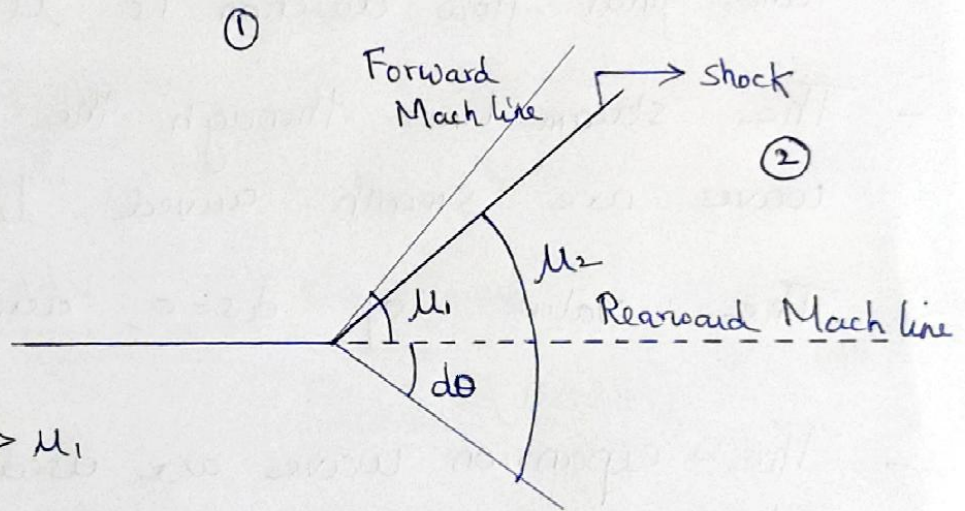 ①
Forward
Mach line
→ shock
②
μ₁
μ₂
Rearward Mach line
dθ
> μ₁